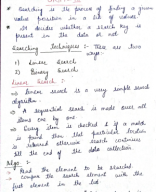 * Searching is the process of finding a given
value position in a list of values.
* It decides whether a search key is
present in the data or not.
Searching Techniques :- There are two
ways.
1) Linear Search
2) Binary Search
Linear Search :-
→ Linear search is a very simple search
algorithm.
→ A sequential search is made over all
items one by one
→ Every item is checked & if a match
is found then that particular item
is returned otherwise search continues
till the end of the data collection
Read the element to be searched
compare the search element with the
first element in the list